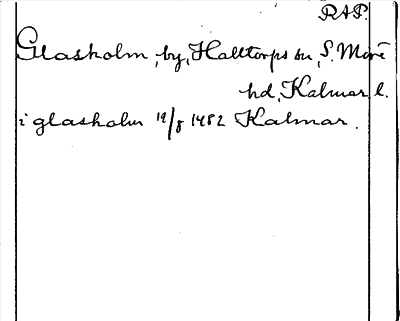 RAP.
Glasholm, by, Halltorps sn, S. Möre
hd, Kalmar l.
i glasholm 19/8 1482 Kalmar.